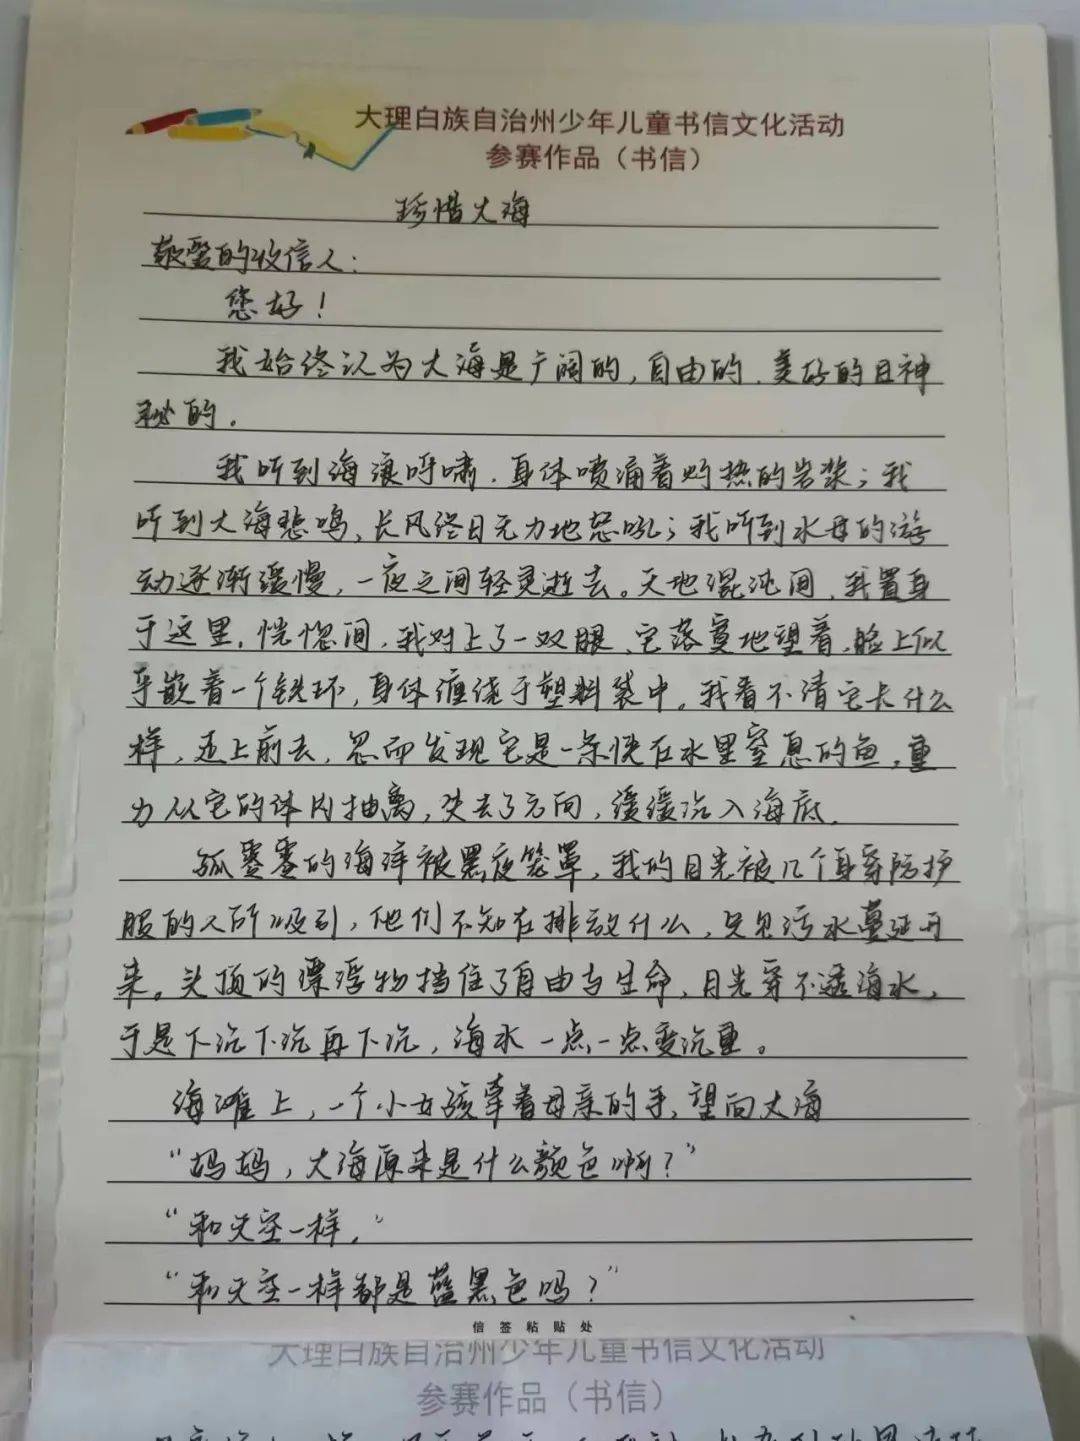 大理白族自治州少年儿童书信文化活动
参赛作品（书信）
珍惜大海
敬爱的收信人：
您好！
我始终认为大海是广阔的，自由的，美好的且神
秘的。
我听到海浪呼啸，身体喷涌着灼热的岩浆；我
听到大海悲鸣，长风终日无力地怒吼；我听到水母的游
动逐渐缓慢，一夜之间轻灵逝去。天地混沌间，我置身
于这里，恍惚间，我对上了一双眼，它落寞地望着，脸上似
乎嵌着一个铁环，身体缠绕于塑料袋中。我看不清它长什么
样，迈上前去，忽而发现它是一条快在水里窒息的鱼，重
力从它的体内抽离，失去了方向，缓缓沿入海底。
孤零零的海洋被黑夜笼罩，我的目光被几个身穿防护
服的人所吸引，他们不知在排放什么，只见污水蔓延开
来。头顶的漂浮物挡住了自由与生命，月光穿不透海水，
于是下沉下沉再下沉，海水一点一点变沉重。
海滩上，一个小女孩牵着母亲的手，望向大海
“妈妈，大海原来是什么颜色啊？”
“和天空一样。”
“和天空一样都是蓝黑色吗？”
信签粘贴处
大理白族自治州少年儿童书信文化活动
参赛作品（书信）